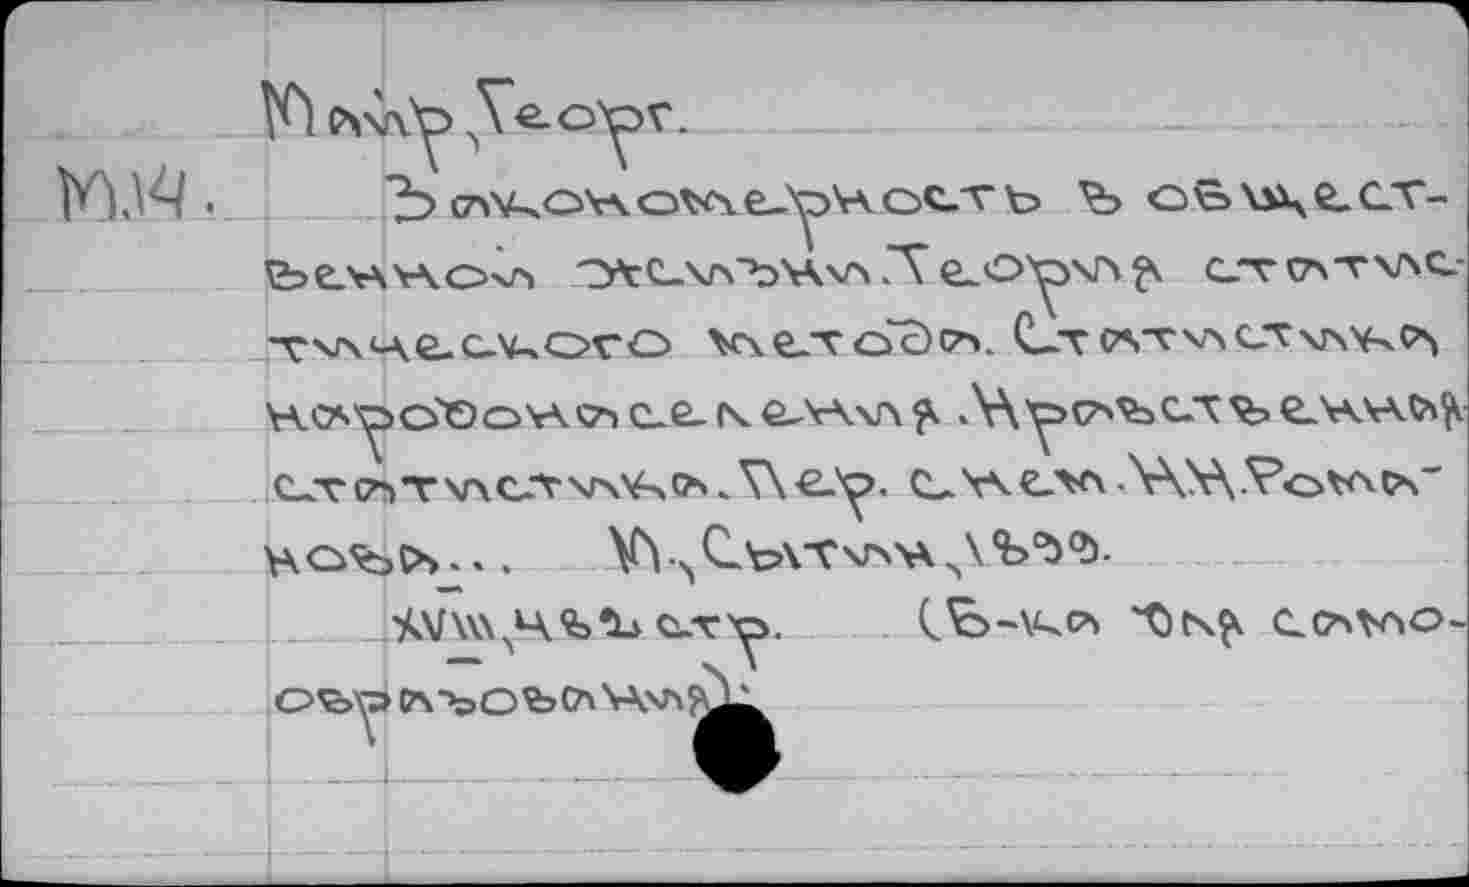 Майр, Георг.
М.14. Закономерность в общест-
венной жизни. Теория статис-
тического метода. Статистика
народонаселения. Нравственная
статистика. Пер. с нем. Н.Н.Рома-
нова... М., Сытин, 1899.
XVIII, 482 стр. (Б-ка для само-
образования)